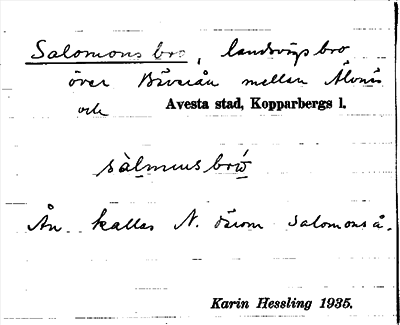 Salomons bro, landsvägsbro
över Bäsiån mellan Älvnäs
och Avesta stad, Kopparbergs l.
sàlmuns brό̄
Ån kallas N. därom Salomonså.
Karin Hessling 1935.